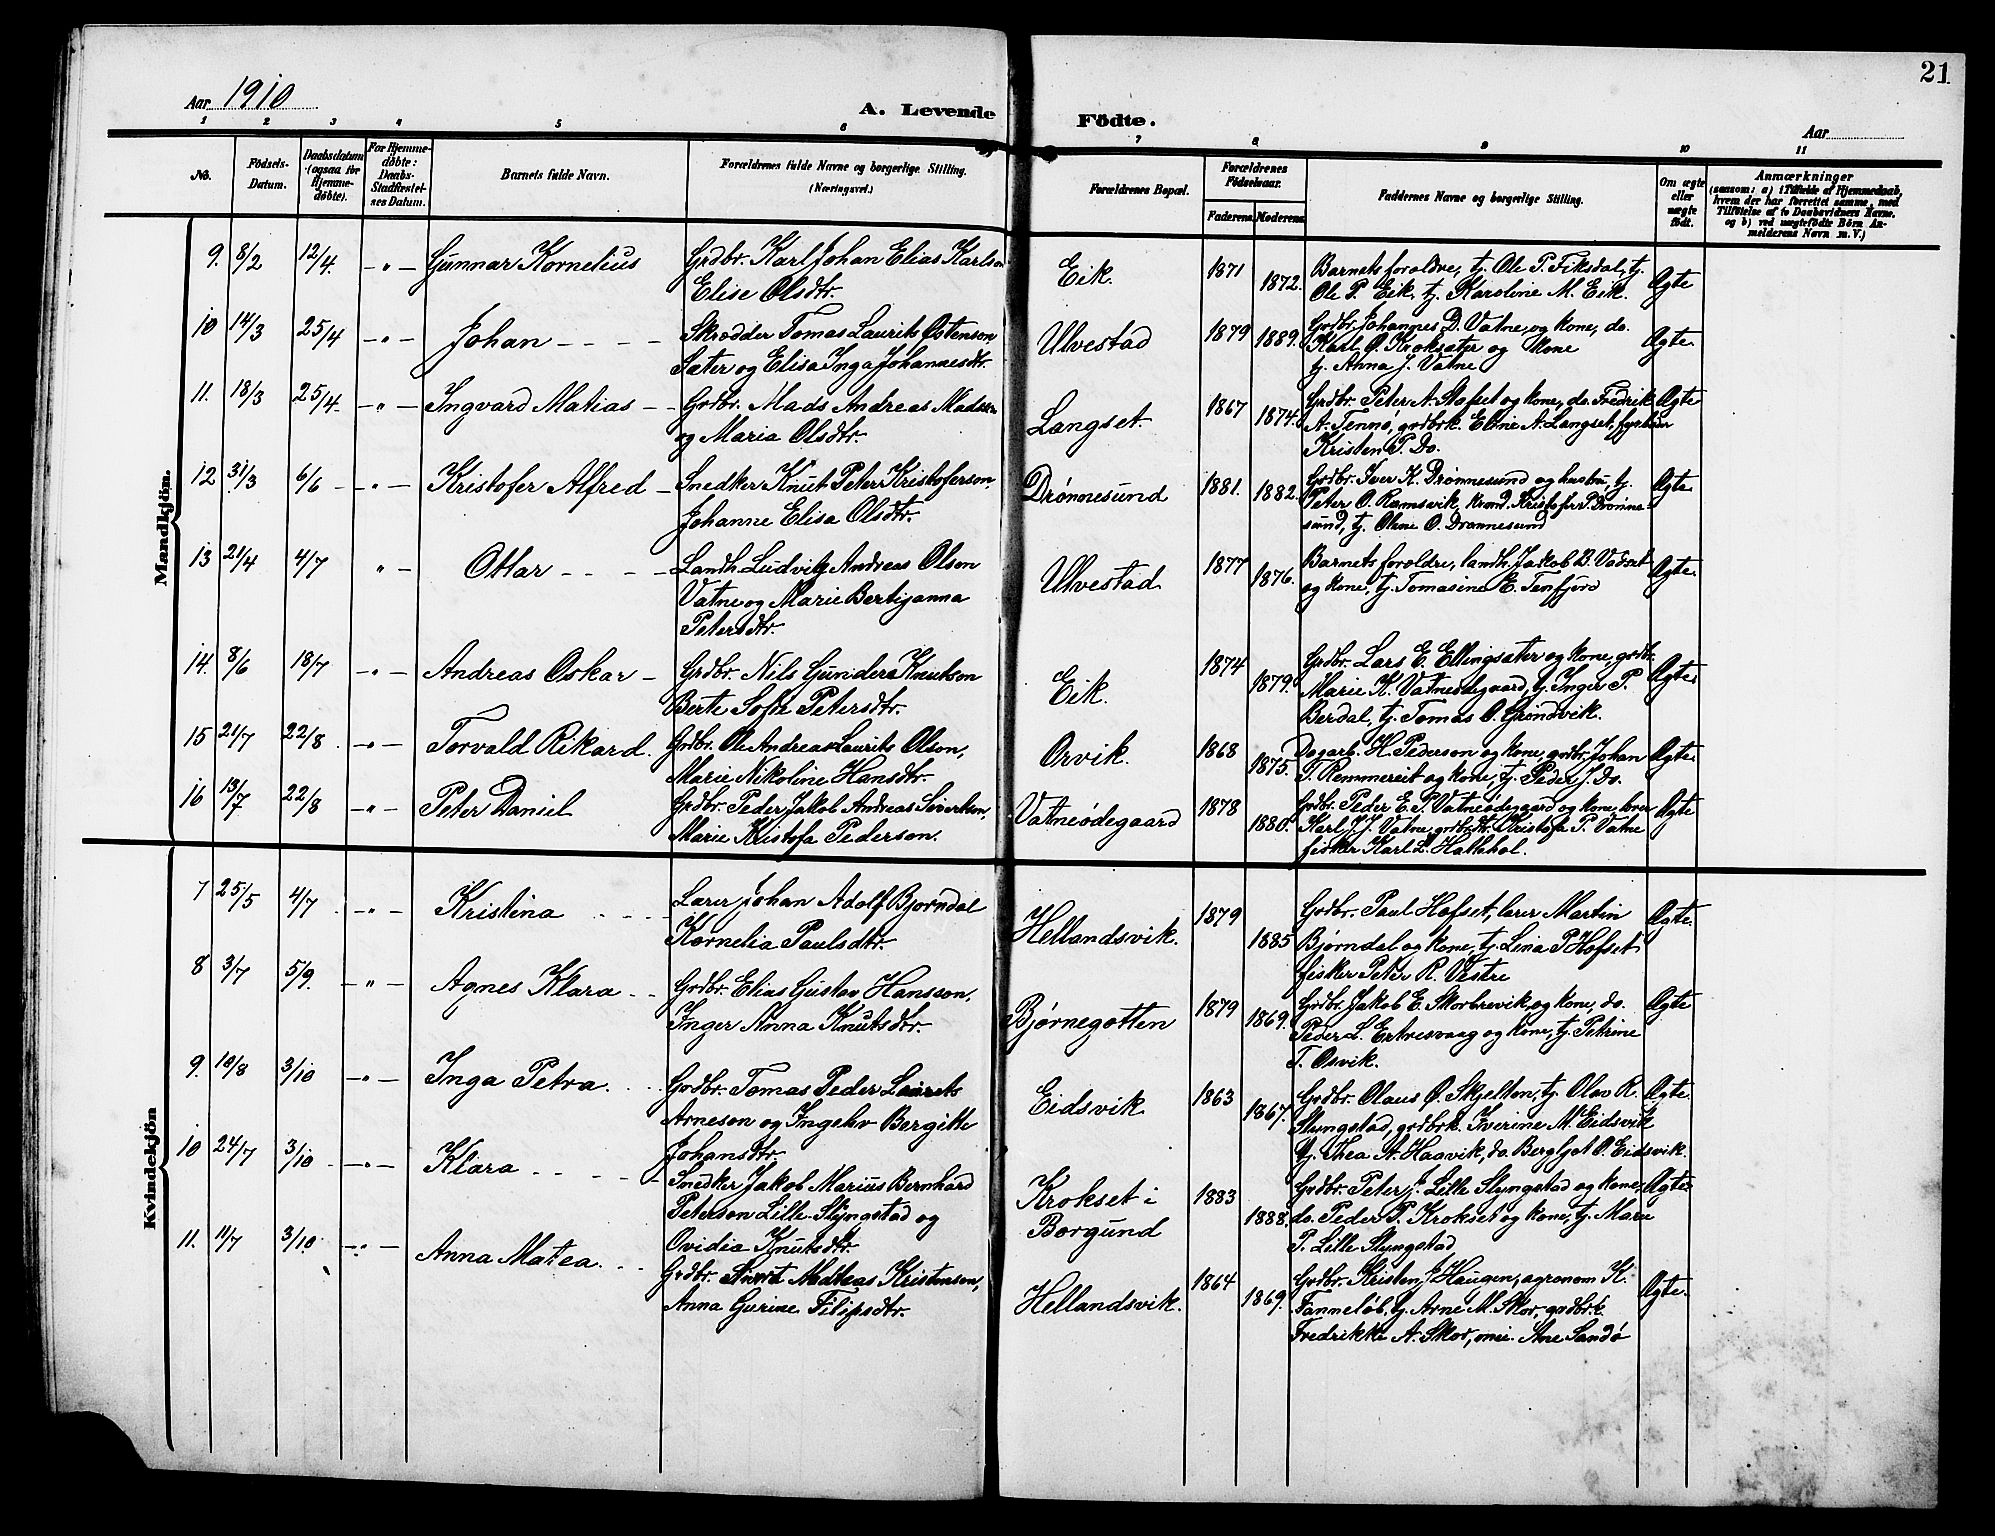 21
Aar 1910
A. Levende Födte.
Aar
1 2 3 4 5 6 7 8 9 10 11
No.
Födsels-
Datum.
Daabsdatum
(ogsaa for
Hjemme-
döbte).
For Hjemme-
døbte:
Daabs-
Stadfæstel-
ses Datum.
Barnets fulde Navn.
Forældrenes fulde Navne og borgerlige Stilling.
(Næringsvei.)
Forældrenes Bopæl.
Forældrenes
Födselsaar.
Faderens. Moderens.
Faddernes Navne og borgerlige Stilling.
Om ægte
eller
uægte
födt.
Anmærkninger
(saasom: a) i Tilfælde af Hjemmedaab,
hvem der har forrettet samme, med
Tilföielse af to Daabsvidners Navne,
og b) ved uægtefödte Börn An-
melderens Navn m. V.)
Mandkjön.
9. 8/2 12/4. - " - Gunnar Kornelius
Grdbr. Karl Johan Elias Karlson
Elise Olsdtr.
Eik. 1871 1872.
Barnets foroldre, tj. Ole P. Fiksdal, tj.
Ole P. Eik, tj. Karoline M. Eik.
Ægte
10 14/3 25/4 - " - Johan - - - -
Skrædder Tomas Laurits Ostenson
Sæter og Elisa Inga Johannesdtr.
Ulvestad 1879 1889.
Grdbr. Johannes D. Vatne, og kone, do.
Karl O. Kroksæter og Kone
tj. Anna J. Vatne
Ægte.
11. 18/3 25/4. - " - Ingvard Matias - -
Grdbr. Mads Andreas Madsson
og Maria Olsdtr.
Langset. 1867 1874.
Grdbr. Peter A. Slafset og kone, do. Fredrik
A. Tennø, grdbrk. Eline A. Langset,
Kristen P. Do.
Ægte
12 31/3 6/6 - " - Kristofer Alfred -
Snedker Knut Peter Kristoferson.
Johanne Elisa Olsdtr.
Drønnesund 1881. 1882.
Grdbr. Iver K. Drønnesund og hustru, tj.
Peter O. Ramsvik, Kristofer P. Drønne-
sund, tj. Oline O. Drønnesund
Ægte.
13 21/4 4/7 " Ottar - - - -
Landh. Ludvig Andreas Olson
Vatne og Marie Bertijanna
Petersdtr.
Ulvestad. 1877 1876.
Barnets foroldre, landh. Jakob B. Vadset
og kone, tj. Tomasine E. Tenfjord
Ægte.
14. 8/6 18/7 - " - Andreas Oskar -
Grdbr. Nils Gunders Knutson
Berte Sofie Petersdtr.
Eik. 1874 1879.
Grdbr. Lars E. Ellingsæter og kone, grdbr.
Marie K. Vatneødegaard, tj. Inger P.
Berdal, tj. Tomas O. Grøndvik.
Ægte.
15 21/7 22/8 . - " - Torvald Rikard.
Grdbr. Ole Andreas Laurits Olson,
Marie Nikoline Hansdtr.
Orvik. 1868 1875.
Dagarb. H. Pederson og kone, grdbr. Johan
T. Remmereit og kone, tj. Peder J. Do.
Ægte.
16 13/7 22/8 - " - Peter Daniel
Grdbr. Peder Jakob Andreas Sivertson,
Marie Kristofa Pederson.
Vatneødegaard 1878 1880.
Grdbr. Peder E. P. Vatneødegaard og kone, lærer
Karl J. J. Vatne, grdbr.dtr. Kristofa P. Vatne
fisker Karl L. Hallehol.
Ægte
Kvindekjön
7 25/5 4/7 . - " - Kristina . - - -
Lærer Johan Adolf Bjorndal
Kornelia Paulsdtr.
Hellandsvik. 1879 1885
Grdbr. Paul Hofset, lærer Martin
Bjørndal og kone, tj. Lina P. Hofset
fisker Peter R. Vestre
Ægte.
8 3/7 5/9. - " - Agnes Klara . .
Grdbr. Elias Gustav Hansson,
Inger Anna Knutsdtr.
Bjørnegotten 1879 1869.
Grdbr. Jakob E. Skorbrevik, og kone, do.
Peder L. Ertresvaag og kone, tj. Petrine
T. Osvik.
Ægte
9. 10/8 3/10 - " - Inga Petra. . .
Grdbr. Tomas Peder Laurits
Arneson og Ingebv Bergitte
Johansdtr.
Eidsvik 1863 1867.
Grdbr. Olaus O. Skjelten, tj. Olav R.
Slyngstad, grdbrk. Iverine M. Eidsvik
tj. Thea A. Haavik, do. Bergljot O. Eidsvik.
Ægte.
10 24/7 3/10 - " - Klara - - - -
Snedker Jakob Marius Bernhard
Peterson Lille-Slyngstad og
Ovidia Knutsdtr.
Krokset i
Borgund
1883 1888.
Grdbr. Peter J. Lille Slyngstad og kone,
do. Peder P. Krokset og kone, tj. Marie
P. Lille Slyngstad
Ægte.
11. 11/7 3/10. - " - Anna Matea. . .
Grdbr. Sivert Mathias Kristenson,
Anna Gurine Filipsdtr.
Hellandsvik. 1864 1869.
Grdbr. Kristen J. Haugen, agronom K.
Tanneløb, tj. Arne M. Skor, grdbrk.
Fredrikke A. Skor, mei. Ane Sandø
Ægte.